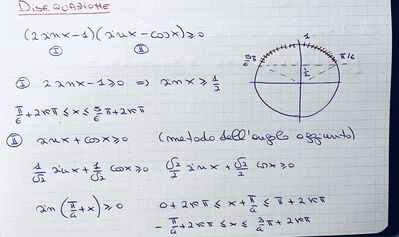 DISEQUAZIONE
(2 sin x - 1)(sin x - cos x) ≥ 0
I II
I 2 sin x - 1 ≥ 0 ⇒ sin x ≥ 1/2
π/6 + 2kπ ≤ x ≤ 5/6 π + 2kπ
1
5/6 π
π/6
1/2
II sin x + cos x ≥ 0 (metodo dell'angolo aggiunto)
1/√2 sin x + 1/√2 cos x ≥ 0 √2/2 sin x + √2/2 cos x ≥ 0
sin (π/4 + x) ≥ 0 0 + 2kπ ≤ x + π/4 ≤ π + 2kπ
- π/4 + 2kπ ≤ x ≤ 3/4 π + 2kπ